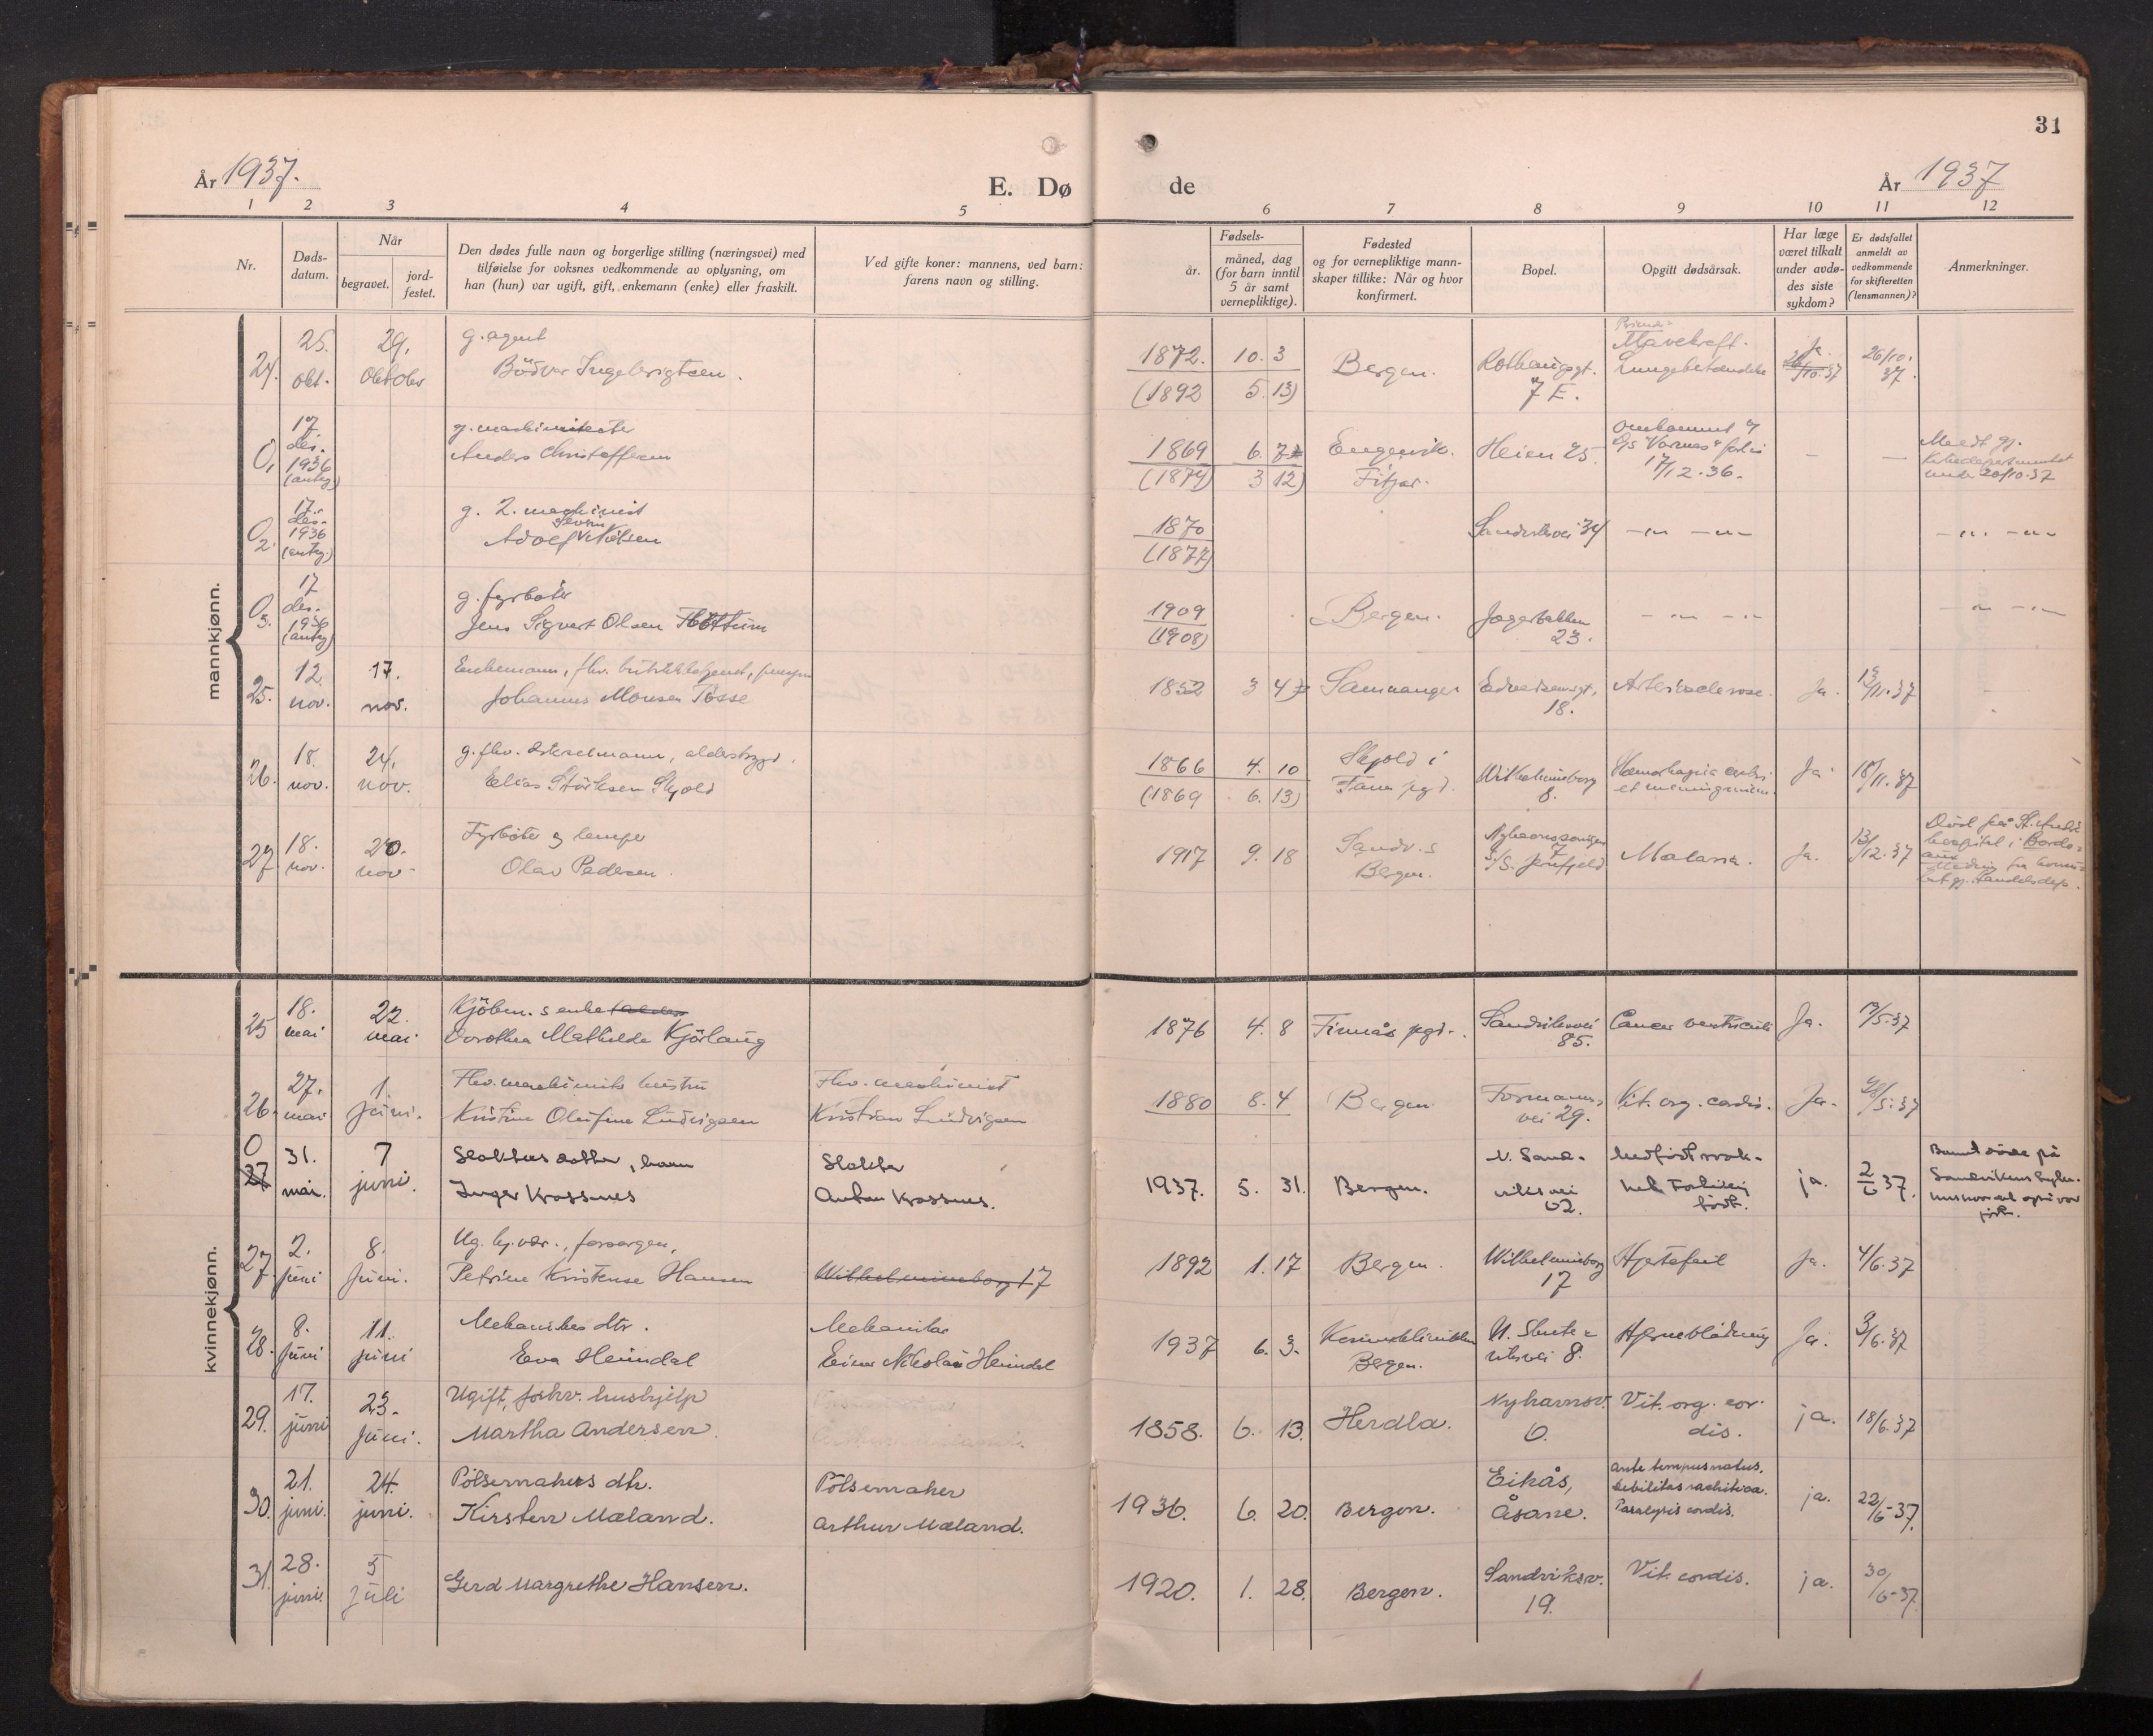 31
År 1937.
E. Dø de
År 1937
1 2 3 4 5 6 7 8 9 10 11 12
Nr.
Døds-
datum.
Når
begravet.
jord-
festet.
Den dødes fulle navn og borgerlige stilling (næringsvei) med
tilføielse for voksnes vedkommende av oplysning, om
han (hun) var ugift, gift, enkemann (enke) eller fraskilt.
Ved gifte koner: mannens, ved barn:
farens navn og stilling.
Fødsels-
år.
måned, dag
(for barn inntil
5 år samt
vernepliktige).
Fødested
og for vernepliktige mann-
skaper tillike: Når og hvor
konfirmert.
Bopel.
Opgitt dødsårsak.
Har læge
været tilkalt
under avdø-
des siste
sykdom?
Er dødsfallet
anmeldt av
vedkommende
for skifteretten
(lensmannen)?
Anmerkninger.
mannkjønn.
24. 25. okt. 29. oktober
g. agent
Bödvar Ingebrigtsen.
1872. 10. 3
(1892 5. 13)
Bergen.
Rothaugsgt.
7 E.
Mavekreft.
Lungebetendelse
Ja.
26/10-37
26/10.
37.
0, 17 des. 1936 (antag.)
g. maskinist
Anders Christoffersen
1869 6. 7
(1874) 3 12)
Engevik.
Fitjar.
Heien 25.
omkommet
D/s "Varnes" forlis
17/12. 36.
—
—
Medt gj.
Kirkedepartementet
20/10-37
0 2. 17. des. 1936 (antag.)
g. 2. maskinist
Adolf Nilsen
1870
(1877)
Sandviksvei 34
—"— —"—
—"— —"—
0 3. 17 des. 1936 (antag)
g. fyrbøter
Jens Sigvart Olsen
1909
(1908)
Bergen.
23.
—"— —"—
—"— —"—
25. 12. nov. 17. nov.
Enkemann, fhv.
Johannes Monsen Tösse
1852 3 4
Samnanger
18.
Arteriosclerose.
Ja.
13/11-37
26. 18. nov. 24. nov.
g. fhv. alderstrygd.
Elias Störksen Skjold
1866 4. 10
(1869 6. 13)
Skjold i
Fana pgd.
Wilhelminsborg
8.
Ja.
18/11.37
27. 18. nov. 20. nov.
Fyrböter og lemper
Olav Pedersen
1917 9. 18
Sandv. s
Bergen.
7
Malaria.
Ja.
13/12.37
Död på St. André
hospital i Bordeaux
kvinnekjønn.
25 18. mai 22. mai
Kjöbm. s enke
Dorothea Mathilde Kjörlaug
1876 4. 8
Finnås pgd.
Sandviksvei
85.
Cancer ventriculi
Ja.
19/5-37
26. 27. mai 1. juni.
Fhv. maskinists hustru
Kristine Olufine Ludvigsen
Fhv. maskinist
Kristian Ludvigsen
1880 8. 4
Bergen
Formanns
vei 29.
Vit. org. cordis.
Ja.
28/5-37
0 27 31. mai. 7 juni.
Slakters datter, barn
Inger Krossnes
Slakter
Anton Krossnes.
1937. 5. 31.
Bergen.
N. Sand-
viksvei
62.
Medfödt svak-
het. For tidlig
födt.
ja.
2/6 37.
Barnet döde på
Sandvikens syke-
hus hvor det også var
född.
27. 2. juni 8. juni.
Petrine Kristense Hansen
Wilhelminsborg 17
1892 1. 17
Bergen.
Wilhelminsborg
17
Hjertefeil
Ja.
4/6.37
28. 8. juni 11. juni
Mekanikers dtr.
Eva Heimdal
Mekaniker
Einar Nikolai Heimdal
1937 6. 3.
Kvinneklinikken
Bergen.
N. Skute-
viksvei 8.
Hjerneblödning
Ja.
9/6.37
29. 17. juni 23. juni.
Ugift, forhv. hushjelp
Martha Andersen.
1858. 6. 13.
Herdla.
Nyhavnsv.
6.
Vit. org. cor-
dis.
ja.
18/6.37
30. 21. juni. 24. juni.
Pölsemakers dtr.
Kirsten Mæland.
Pölsemaker
Arthur Mæland.
1936. 6. 20.
Bergen.
Eikås,
Åsane.
Ante tempus natus,
debilitas rachitica.
Paralysis cordis.
ja.
22/6-37.
31. 28. juni. 5 juli
Gerd Margrethe Hansen.
1920. 1. 28.
Bergen.
Sandviksv.
19.
Vit. cordis.
ja.
30/6-37.